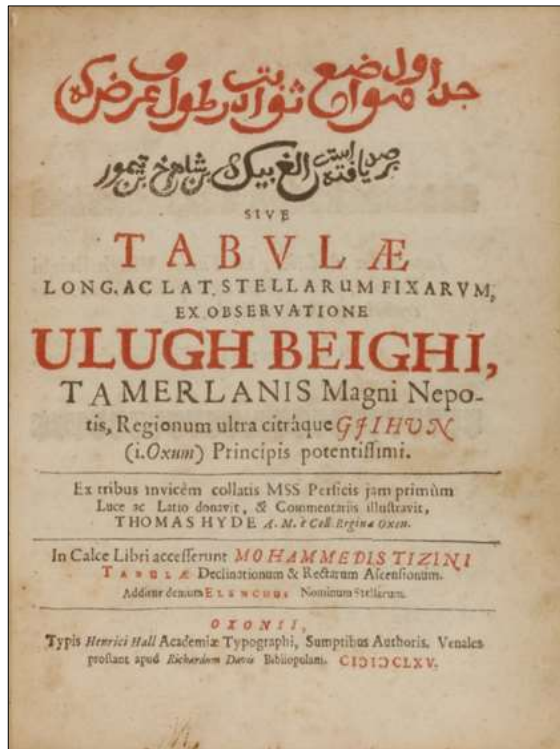 جداول مواضع ثوابت در طول و عرض که
برصد یافته است الغ بیک بن شاهرخ بن تیمور
SIVE
TABVLÆ
LONG. AC LAT. STELLARUM FIXARVM,
EX OBSERVATIONE
ULUGH BEIGHI,
TAMERLANIS Magni Nepo-
tis, Regionum ultra citráque GJIHUN
(i. Oxum) Principis potentiſſimi.
Ex tribus invicém collatis MSS Perſicis jam primùm
Luce ac Latio donavit, & Commentariis illuſtravit,
THOMAS HYDE A. M. è Coll. Reginæ Oxon.
In Calce Libri acceſſerunt MOHAMMEDIS TIZINI
TABULÆ Declinationum & Rectarum Aſcenſionum.
Additur demum ELENCHUS Nominum Stellarum.
OXONII,
Typis Henrici Hall Academiæ Typographi, Sumptibus Authoris. Venales
proſtant apud Richardum Davis Bibliopolam. CIↃIↃCLXV.